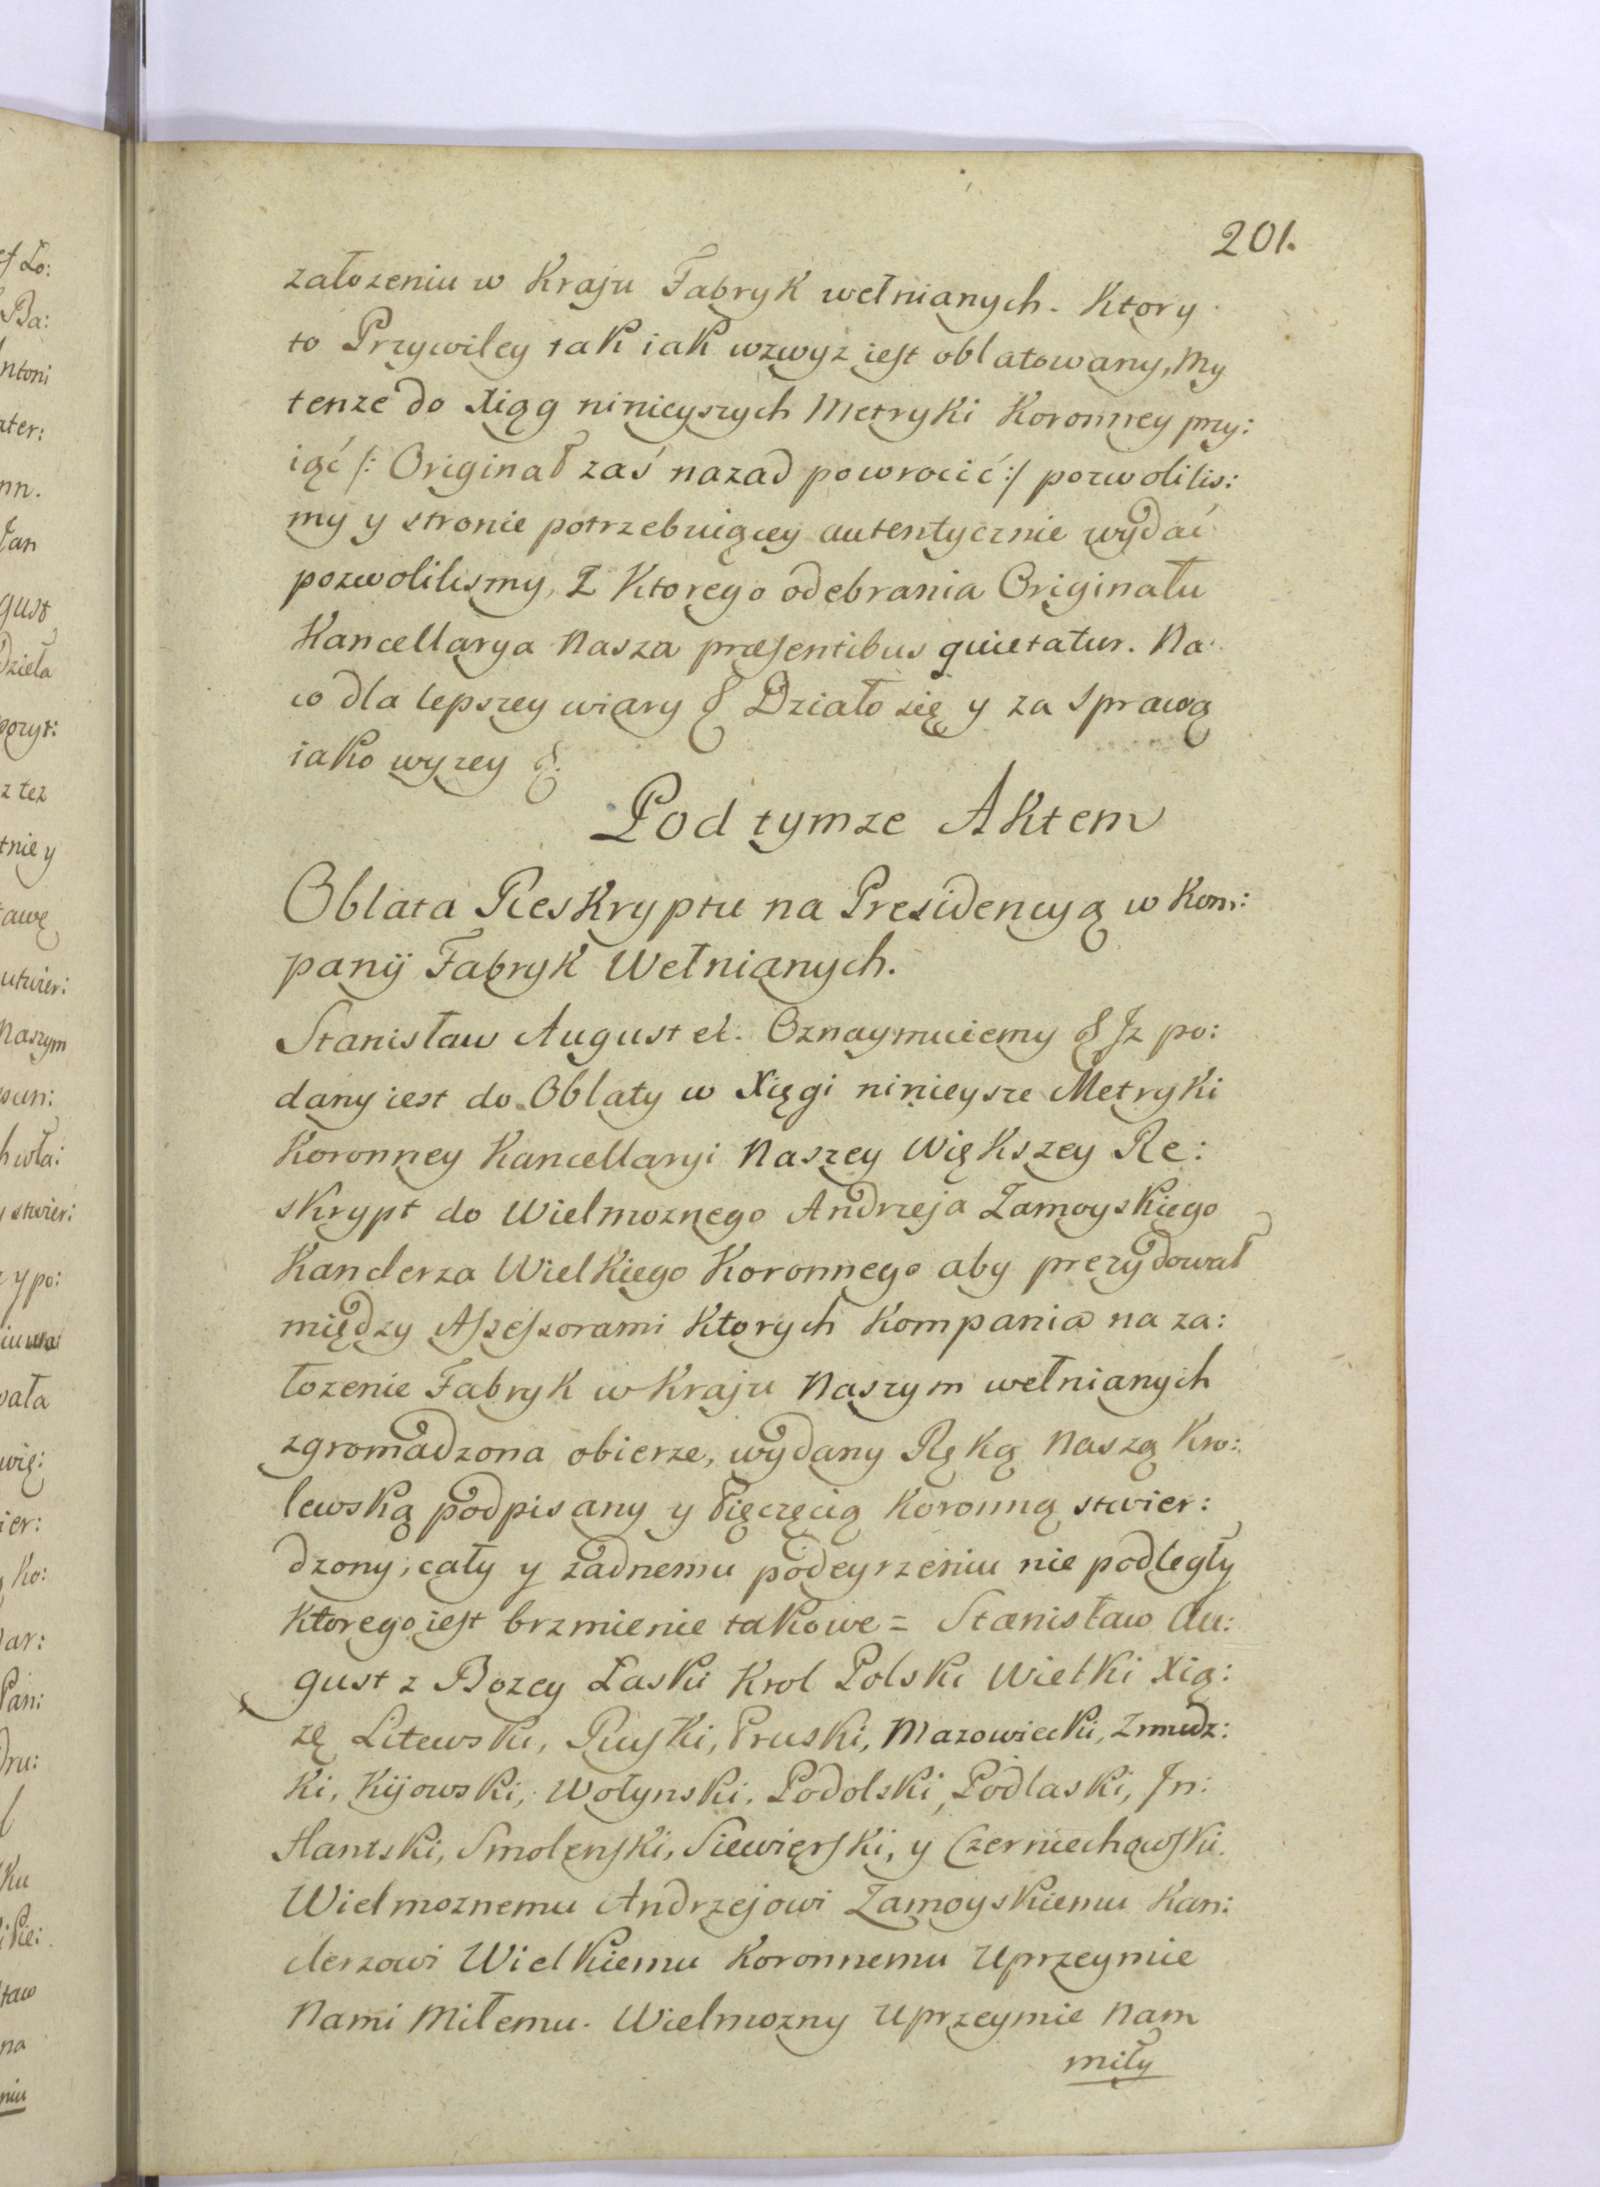 201.
załozeniu w Kraju Fabryk wełnianych. Ktory
to Przywiley tak iak wzwyz iest oblatowany, My
tenze do Xiąg ninieyszych Metryki Koronney przy:
iąć /: Originał zaś nazad powrocić :/ pozwolilis:
my y stronie potrzebuiącey autentycznie wydać
pozwolilismy, Z Ktorego odebrania Originału
Kancellarya Nasza præsentibus quietatur. Na
co dla lepszey wiary & Działo się y za sprawą
iako wyzey &.
Pod tymze Aktem
Oblata Reskryptu na Presidencyą w Kom:
panij Fabryk Wełnianych.
Stanisław August et. Oznaymuiemy & Jz po:
dany iest do Oblaty w Xięgi ninieysze Metryki
Koronney Kancellaryi Naszey Większey Re:
skrypt do Wielmoznego Andrzeja Zamoyskiego
Kanclerza Wielkiego Koronnego aby prezydował
między Assessorami Ktorych Kompania na za:
łozenie Fabryk w Kraju Naszym wełnianych
zgromadzona obierze, wydany Ręką Naszą Kro:
lewską podpisany y Pięczęcią Koronną stwier:
dzony, cały y zadnemu podeyrzeniu nie podległy
Ktorego iest brzmienie takowe = Stanisław Au:
gust z Bozey Łaski Krol Polski Wielki Xią:
zę Litewski, Ruski, Pruski, Mazowiecki, Zmudz:
ki, Kijowski, Wołynski, Podolski, Podlaski, Jn:
flantski, Smolenski, Siewierski, y Czerniechowski.
Wielmoznemu Andrzejowi Zamoyskiemu Kan:
clerzowi Wielkiemu Koronnemu Uprzeymie
Nami Miłemu. Wielmozny Uprzeymie Nam
miły